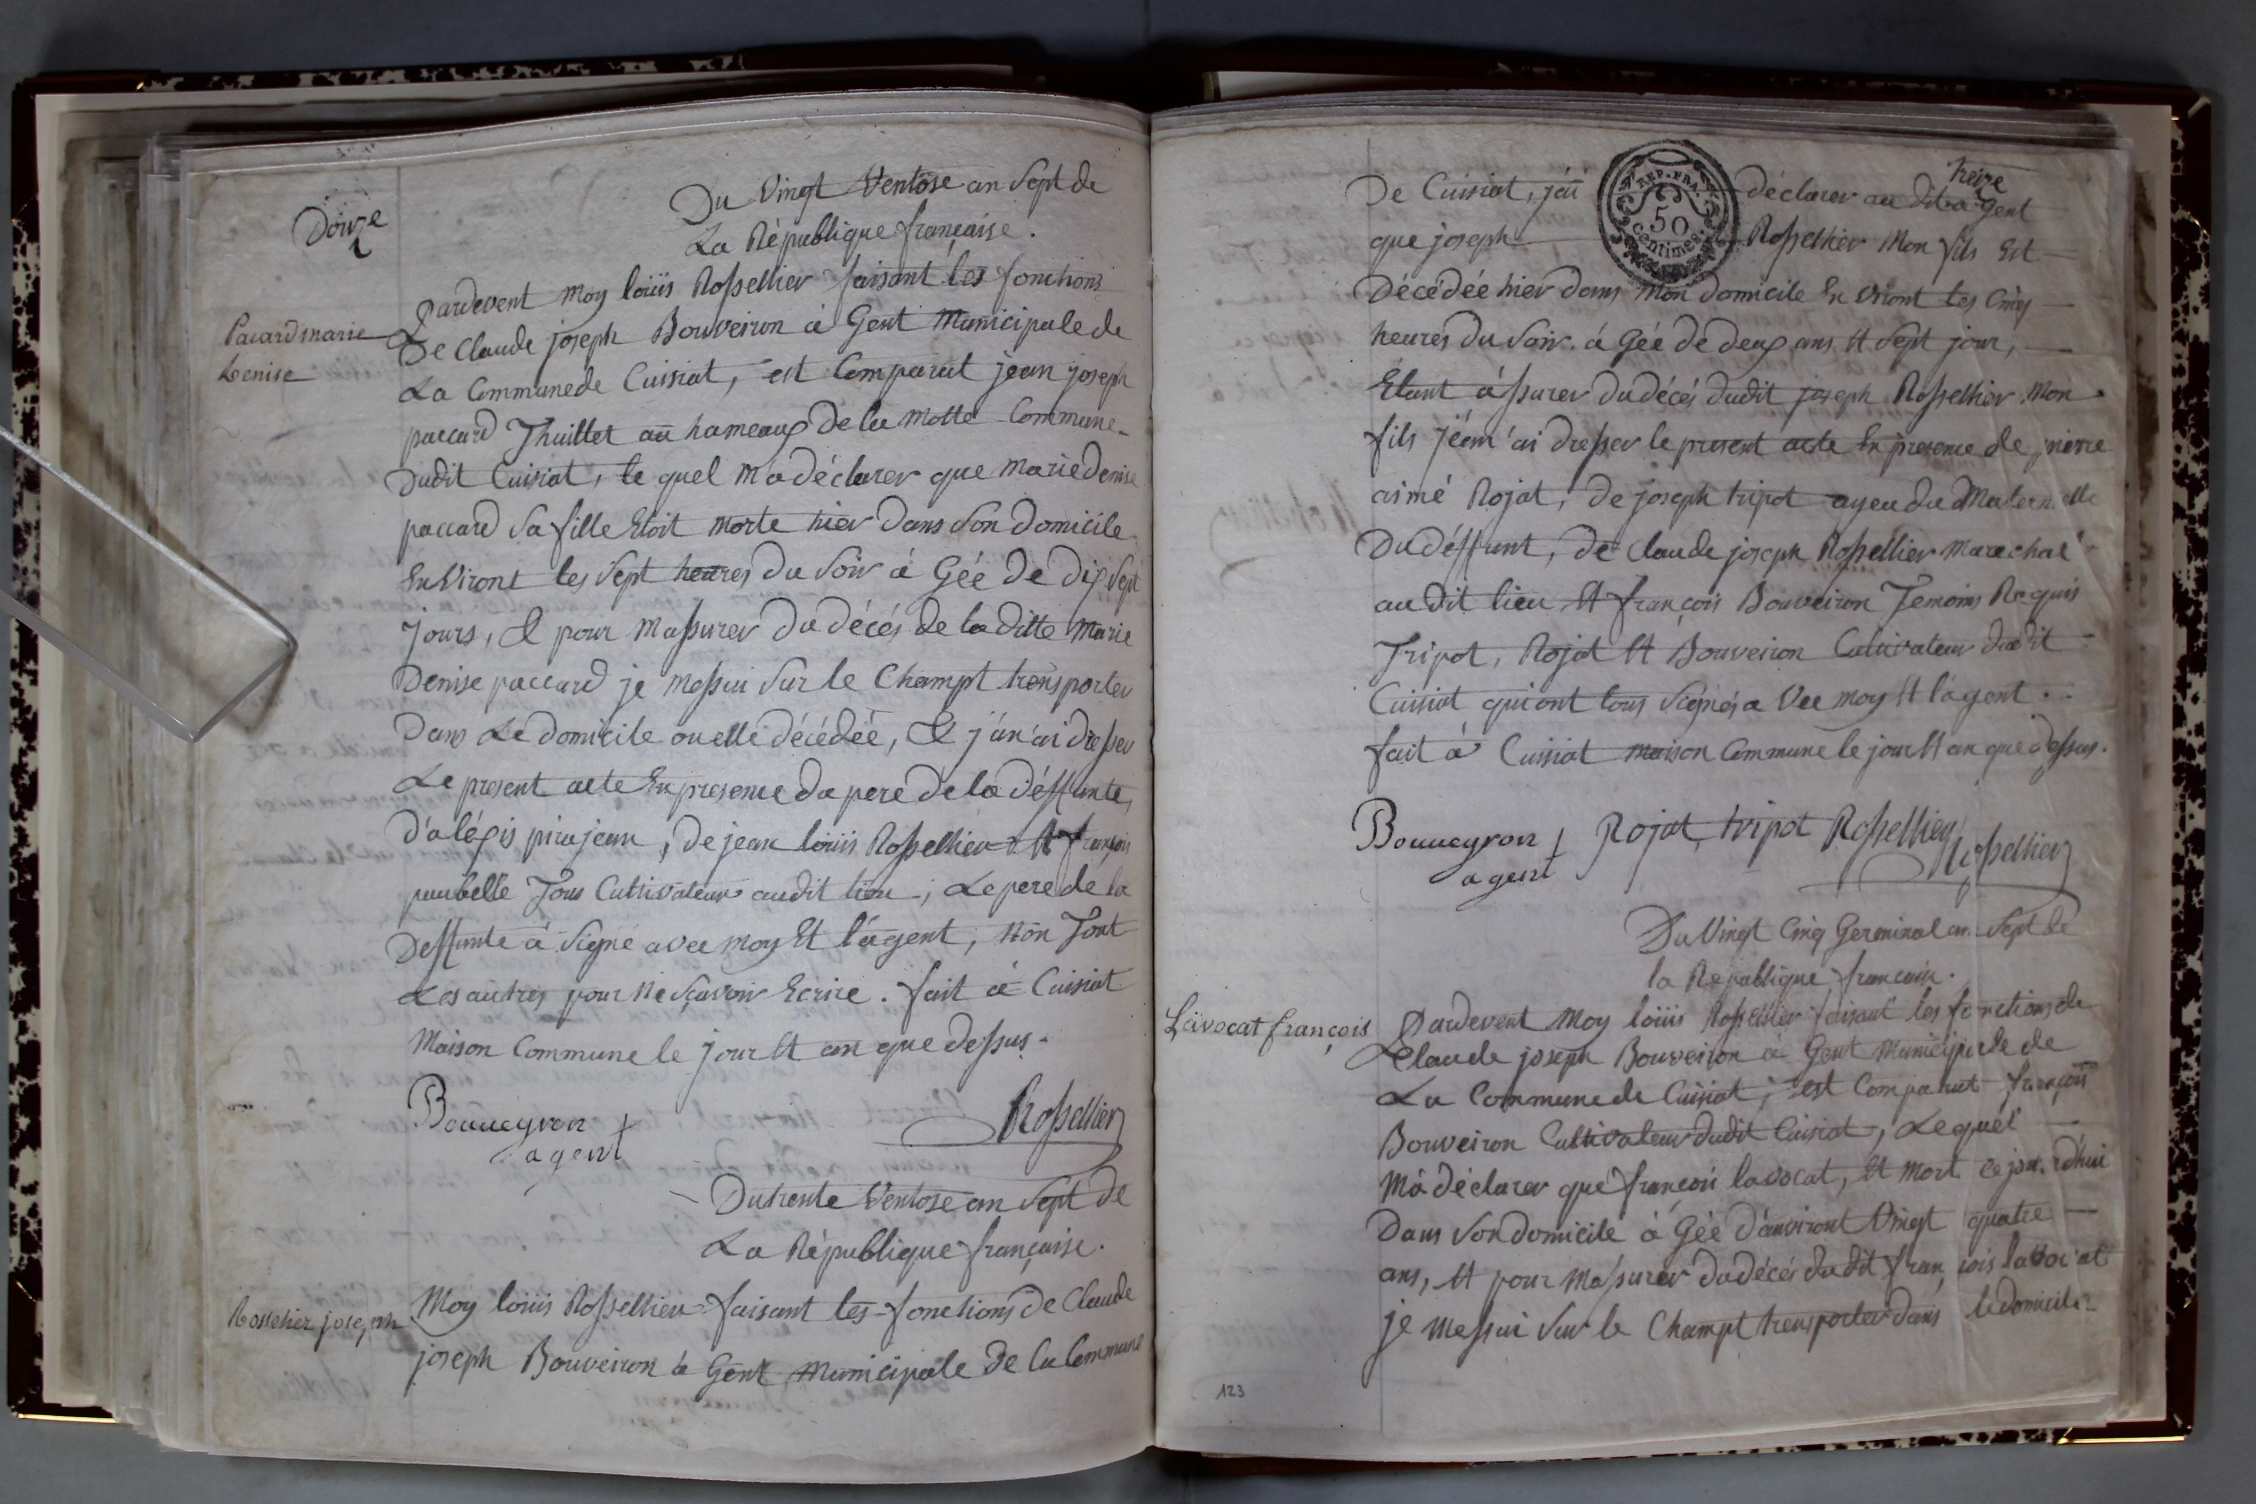 Douze
Du Vingt Ventose an Sept de
La République française.
Pacard marie
Denise
Pardevent moy loüis Rossellier faisant les fonctions
De Claude joseph Bouveiron à Gent Municipale de
La Commune de Cuisiat, est Comparut jean joseph
paccard Thuillet au hameaux De la Motte Commune
Dudit Cuisiat, le quel Ma déclarer que marie Denise
paccard Sa fille Etoit morte hier Dans Son Domicile
En Viront les Sept heures Du Soir à Gée De Dix Sept
Jours, Et pour Massurer Du Décés de la ditte Marie
Denise paccard je Messui Sur le Champt trensporter
Dans Le Domicile ou elle décédée, Et j'an ai Dresser
Le present acte En presence Du pere De la Déffunte,
D'aléxis pirajean, De jean loüis Rossellier Et françois
Tous Cultivateur audit lieu; Le pere de la
Deffunte à Signé avec moy Et l'agent, Non Font
Les autres pour Ne Sçavoir Ecrire. fait à Cuisiat
Maison Commune le jour Et an que Dessus.
Bouueyron
agent
Rossellier
Du trente Ventose an Sept De
La République française.
Rossellier joseph
Moy loüis Rossellier faisant les fonctions De Claude
joseph Bouveiron à Gent Municipale De la Commune
treize
De Cuisiat, j'ai déclarer au dit a Gent
REP. FRA.
50
centimes.
que joseph Rossellier Mon fils Est
Décédée hier Dans Mon Domicile En Viront les Cinq
heures Du Soir à Gée De deux ans Et Sept jour,
Etant àssurer Du décés dudit joseph Rossellier Mon
fils J'éan'ai Dresser le present acte En presence de pierre
aimé Rojat, de joseph tripot ayeu du Maternelle
Du déffunt, de Claude joseph Rossellier Marechal
au Dit lieu Et françois Bouveiron Temoins Requis
Tripot, Rojat Et Bouveiron Cultivateur Dudit
Cuisiat qui ont tous Signés a Vec moy Et l'agent.
fait à Cuisiat maison Commune le jour Et an que dessus.
Bouueyron Rojat tripot Rossellier
agent Rossellier
Du Vingt Cinq Germinal an Sept de
la Republique francaise.
Lavocat françois
Pardevent Moy loüis Rossellier faisant les fonctions de
Claude joseph Bouveiron à Gent Municipale de
La Commune de Cuisiat, est Comparut françois
Bouveiron Cultivateur Dudit Cuisiat, Lequel
Ma déclarer que françois lavocat, Et Mort ce jourd'hui
Dans Son domicile à Gée D'anviront Vingt quatre
ans, Et pour Massurer du décés dudit françois lavocat
je Messui Sur le Champt trensporter dans le domicile
123